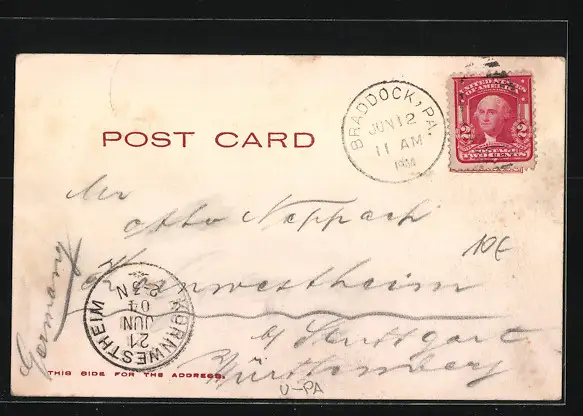 POST CARD
BRADDOCK, PA.
JUN 12
11 AM
1904
UNITED STATES
OF AMERICA
2 2
POSTAGE
TWO CENTS
Mr
Otto Neppach
Kornwestheim
b/ Stuttgart
Württemberg
Germany
10€
KORNWESTHEIM
21
JUN
04
2-3 N
THIS SIDE FOR THE ADDRESS.
U-PA